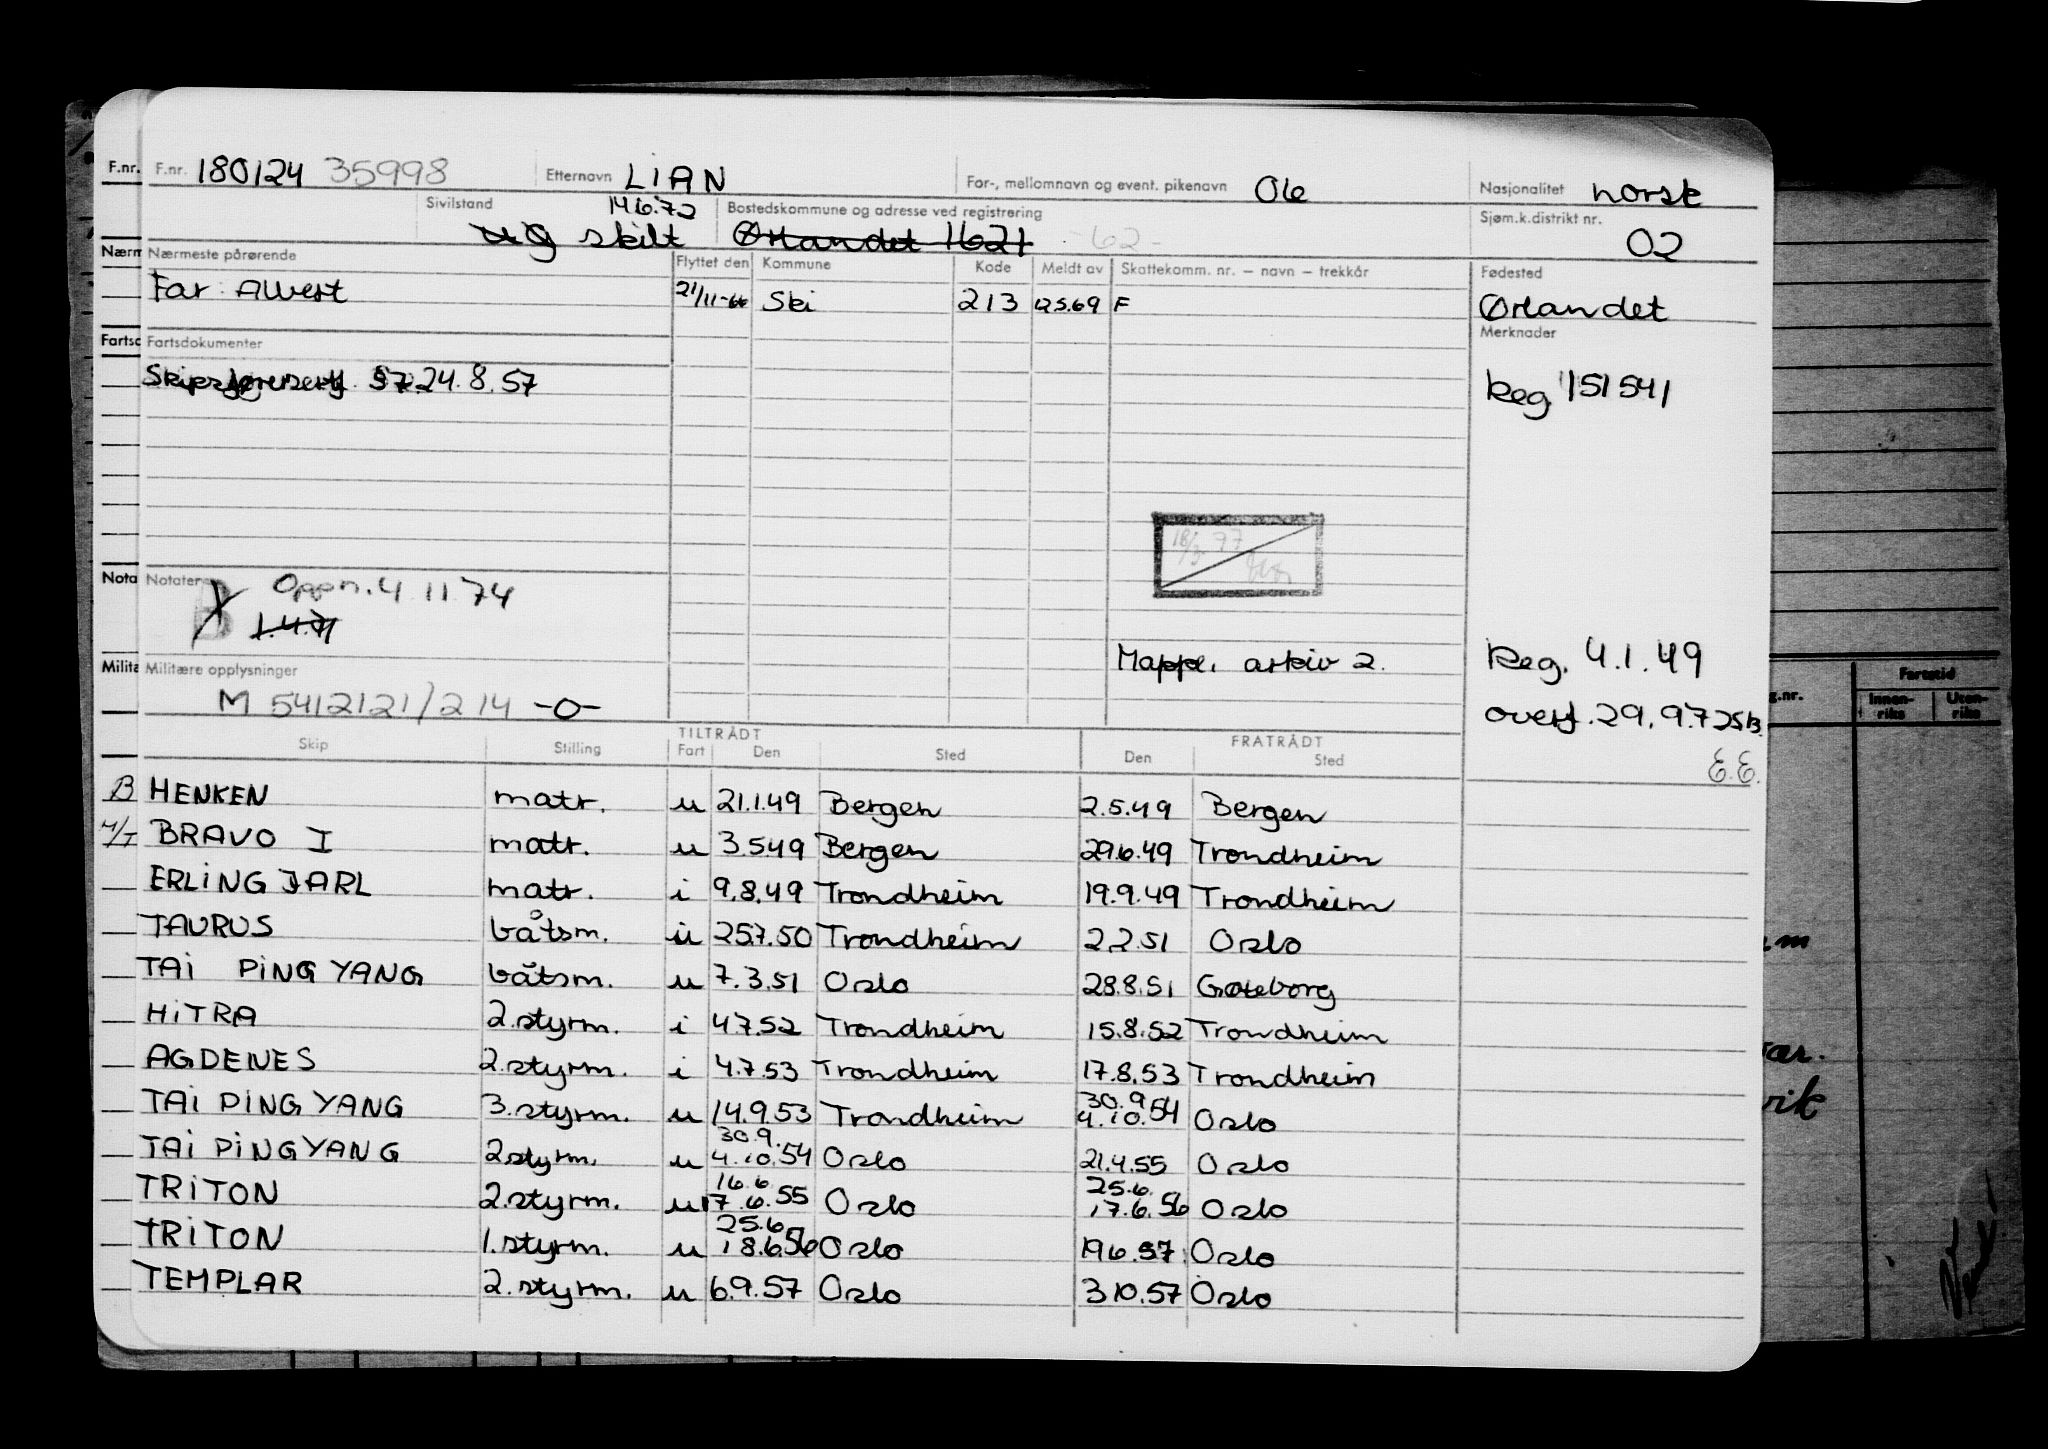 F.nr. F.nr. 180124 35998 Etternavn LIAN For-, mellomnavn og event. pikenavn Ole Nasjonalitet norsk
Sivilstand ug skilt 14.6.72 Bostedskommune og adresse ved registrering Ørlandet 1621 -62- Sjøm.k.distrikt nr. 02
Nærm Nærmeste pårørende Flyttet den Kommune Kode Meldt av Skattekomm. nr. – navn – trekkår Fødested
Far: Albert 21/11-66 Ski 213 12.5.69 F Ørlandet
Fartsd Fartsdokumenter Merknader
Skipsførersert. 57 24.8.57 Reg. 151541
18/3 77
Nota Notater Oppn. 4 11 74
B 1.4.71
Mappe, arkiv 2. Reg. 4.1.49
Milita Militære opplysninger
M 5412121/214 -0- overf. 29.9.72 SB.
E.E.
Skip Stilling TILTRÅDT Fart Den Sted FRATRÅDT Den Sted
B HENKEN matr. u 21.1.49 Bergen 2.5.49 Bergen
M/T BRAVO I matr. u 3.5.49 Bergen 29.6.49 Trondheim
ERLING JARL matr. i 9.8.49 Trondheim 19.9.49 Trondheim
TAURUS båtsm. u 25.7.50 Trondheim 2.2.51 Oslo
TAI PING YANG båtsm. u 7.3.51 Oslo 28.8.51 Gøteborg
HITRA 2.styrm. i 4.7.52 Trondheim 15.8.52 Trondheim
AGDENES 2.styrm. i 4.7.53 Trondheim 17.8.53 Trondheim
TAI PING YANG 3.styrm. u 14.9.53 Trondheim 30.9. 4.10.54 Oslo
TAI PING YANG 2styrm. u 30.9. 4.10.54 Oslo 21.4.55 Oslo
TRITON 2.styrm. u 16.6. 17.6.55 Oslo 25.6. 17.6.56 Oslo
TRITON 1.styrm. u 25.6. 18.6.56 Oslo 19.6.57 Oslo
TEMPLAR 2.styrm. u 6.9.57 Oslo 3.10.57 Oslo
g.nr. Fartstid
Innen-riks Uten-riks